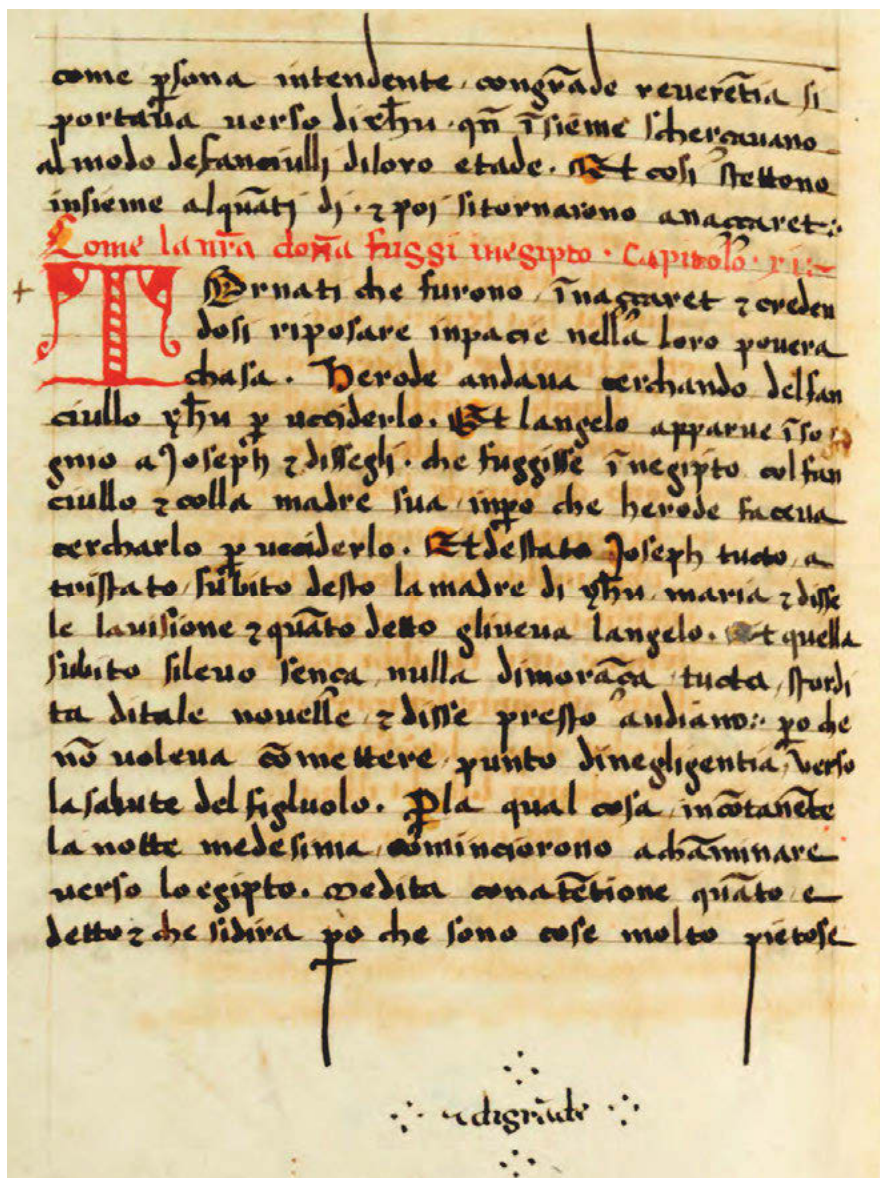 come p̱sona intendente congrāde reuerētia si
portaua uerso dixp̄hu. qn̄ īsieme schercauano
al modo defanciulli diloro etade. Et cosi stettono
insieme alquāti dj. ⁊ poj sitornarono anaççaret:.
Come la nr̄a doña fuggi inegipto. Capitolo. xi:~
TOrnati che furono īnaççaret ⁊ creden
dosi riposare inpacie nella loro pouera
chasa. Herode andaua cerchando delfan
ciullo yh̄u p̱ ucciderlo. Et langelo apparue īso
gnio a Joseph ⁊ dissegli. che fuggisse īnegipto colfan
ciullo ⁊ colla madre sua inp̱o che herode faceua
cercharlo p̱ ucciderlo. Et destato Joseph tucto a
tristato subito desto la madre di yh̄u maria ⁊ disse
le lauisione ⁊ quāto detto gliueua langelo. Et quella
subito sileuo sença nulla dimorāça tucta stordi
ta ditale nouelle ⁊ disse presto andiano:. p̱o che
nō uoleua cōmettere punto dinegligentia uerso
lasalute del figluolo. P̱la qual cosa incōtanēte
la notte medesima cominciorono achāminare
uerso loegipto. Medita conatētione quāto e
detto ⁊ che sidira p̱o che sono cose molto pietose
⁊ digrāde